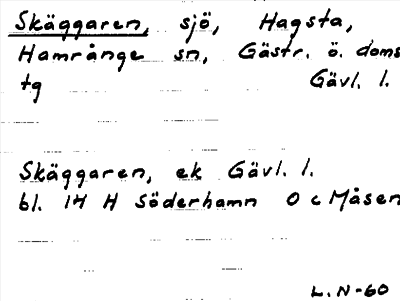 Skäggaren, sjö, Hagsta,
Hamrånge sn, Gästr. ö. doms
tg Gävl. l.
Skäggaren, ek Gävl. l.
bl. 14 H Söderhamn O c Måsen
L. N-60